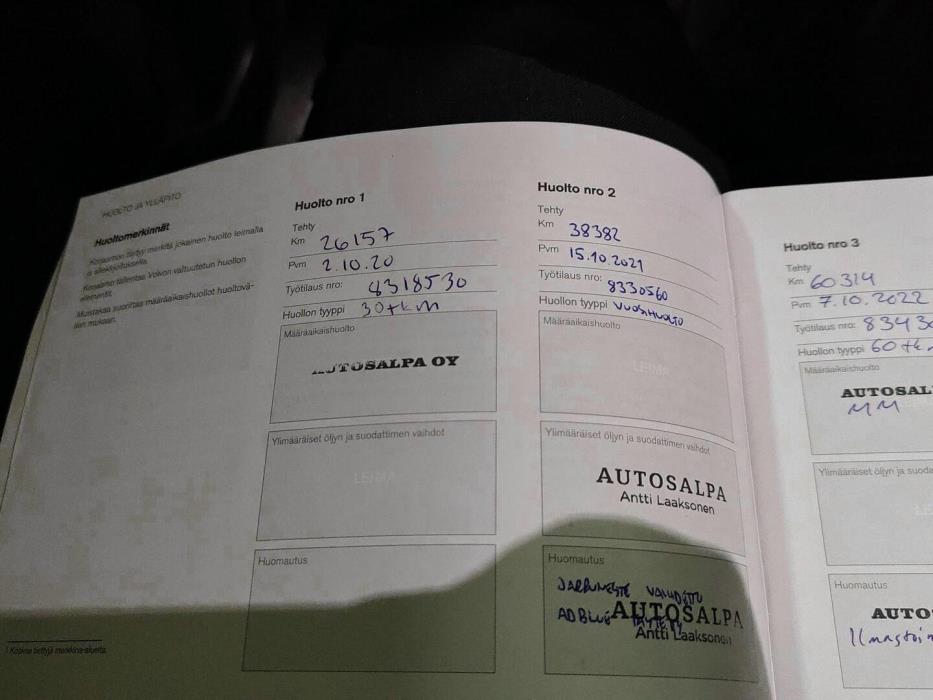 HUOLTO JA YLLÄPITO
Huoltomerkinnät
Korjaamon täytyy merkitä jokainen huolto leimalla
ja allekirjoituksella.
Korjaamo tallentaa Volvon valtuutetun huollon
elementit.
Muistakaa suorittaa määräaikaishuollot huoltovä-
lien mukaan.
Huolto nro 1
Tehty
Km 26157
Pvm 2.10.20
Työtilaus nro: 8318530
Huollon tyyppi 30tkm
Määräaikaishuolto
AUTOSALPA OY
Ylimääräiset öljyn ja suodattimen vaihdot
LEIMA
Huomautus
Huolto nro 2
Tehty
Km 38382
Pvm 15.10.2021
Työtilaus nro: 8330560
Huollon tyyppi VUOSIHUOLTO
Määräaikaishuolto
LEIMA
Ylimääräiset öljyn ja suodattimen vaihdot
AUTOSALPA
Antti Laaksonen
Huomautus
JARRUNESTE VAIHDETTU
ADBLUE TÄYTETTY
AUTOSALPA
Antti Laaksonen
Huolto nro 3
Tehty
Km 60314
Pvm 7.10.2022
Työtilaus nro: 8343
Huollon tyyppi 60tk
Määräaikaishuolto
AUTOSAL
MM
Ylimääräiset öljyn ja suoda
Huomautus
AUTO
Ilmastoin